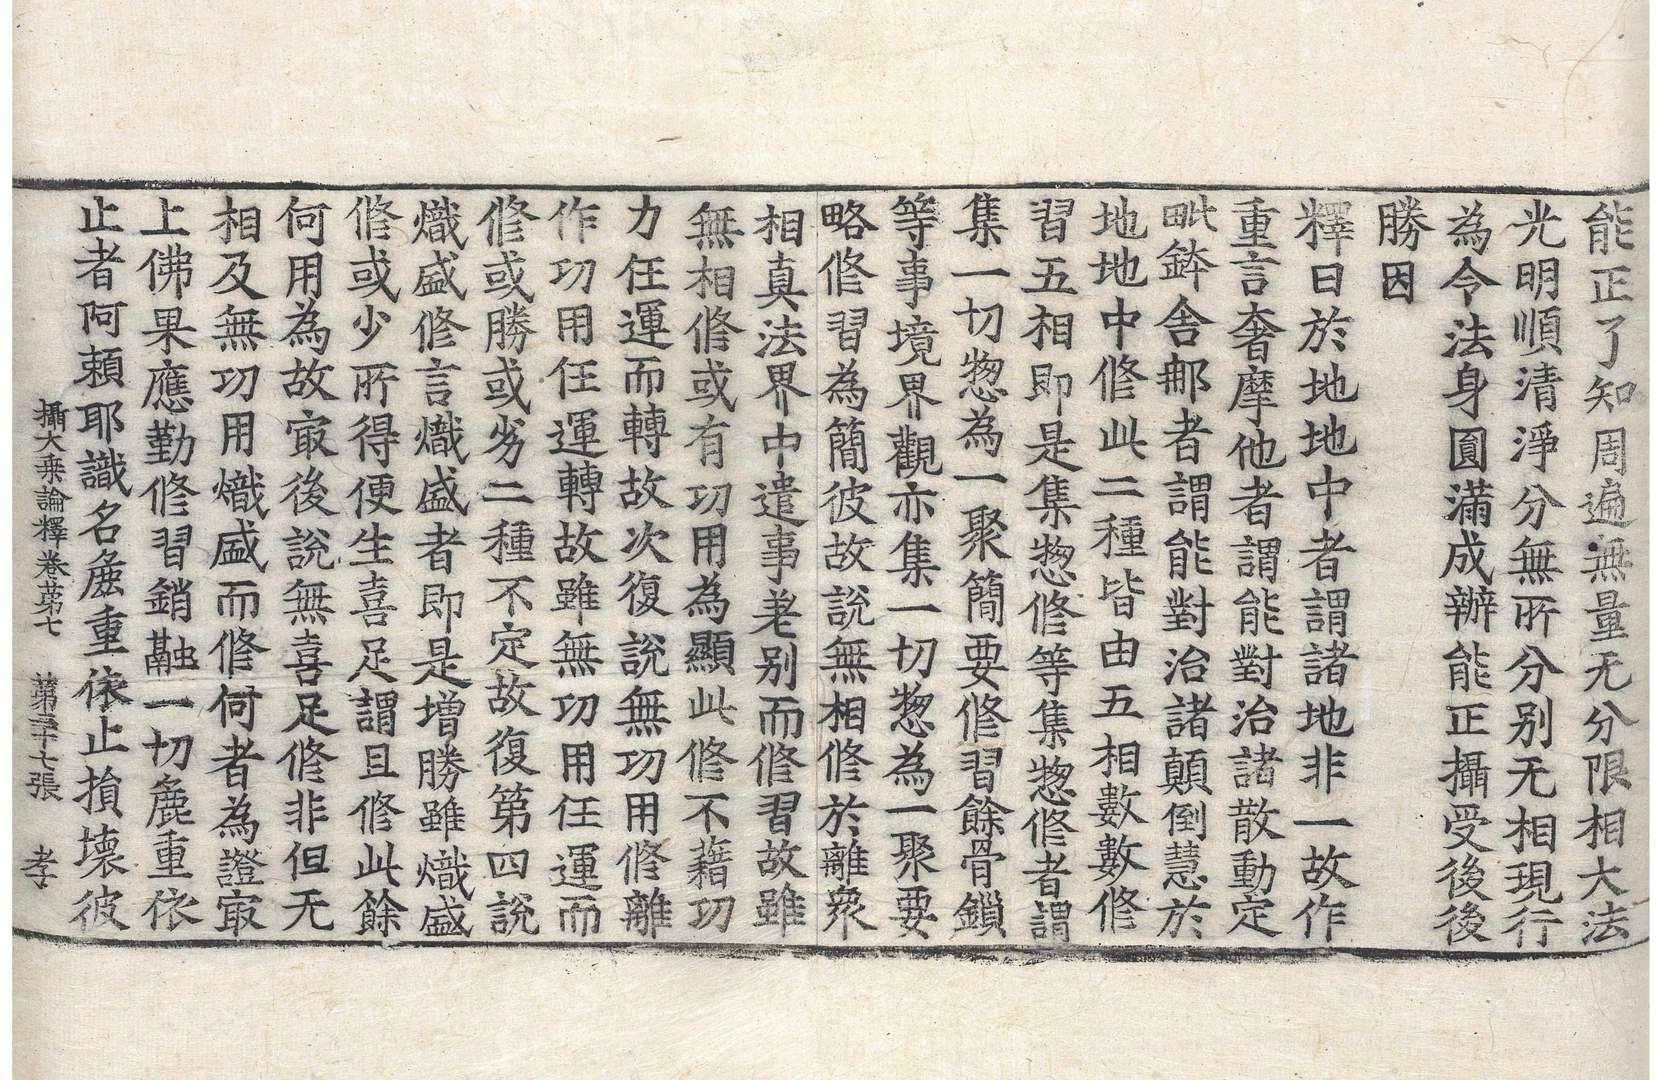 能正了知周遍無量无分限相大法
光明順清淨分無所分别无相現行
為令法身圓滿成辦能正攝受後後
勝因
釋曰於地地中者謂諸地非一故作
重言奢摩他者謂能對治諸散動定
毗鉢舍那者謂能對治諸顛倒慧於
地地中修此二種皆由五相數數修
習五相即是集惣修等集惣修者謂
集一切惣為一聚簡要修習餘骨鎖
等事境界觀亦集一切惣為一聚要
略修習為簡彼故說無相修於離衆
相真法界中遣事差别而修習故雖
無相修或有功用為顯此修不藉功
力任運而轉故次復說無功用修離
作功用任運轉故雖無功用任運而
修或勝或劣二種不定故復第四說
熾盛修言熾盛者即是增勝雖熾盛
修或少所得便生喜足謂且修此餘
何用為故㝡後說無喜足修非但无
相及無功用熾盛而修何者為證㝡
上佛果應勤修習銷融一切麁重依
止者阿賴耶識名麁重依止損壞彼
攝大乘論釋卷第七　第二十七張　孝